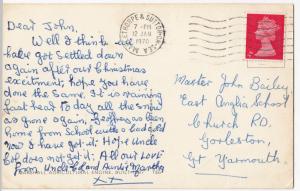 Dear John,
Well I think all
have got settled down
again after our Christmas
excitment, hope you have
done the same. It is raining
fast here to day all the snow
as gone again, Geoffrey as been
home from School with a bad cold
now I have got it. Hope Uncle
Bob does not get it. All our Love
from Uncle and Auntie
xx
THORPE & SUTTON-ON-SEA
7 - PM
12 JAN
1970
Master John Bailey
East Anglia School
Church RD.
Gorleston.
Gt Yarmouth
AGRICULTURAL ENGINE,